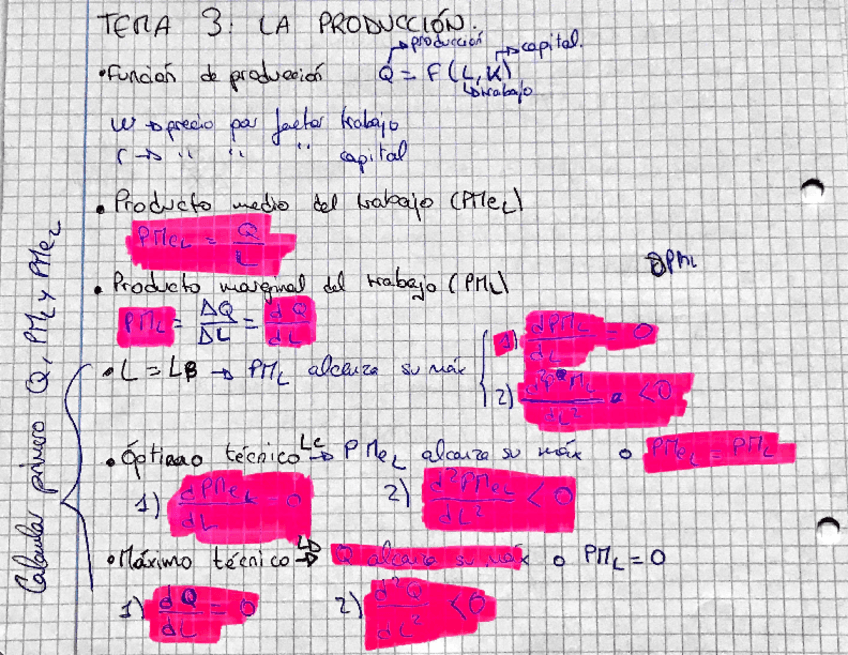 TEMA 3: LA PRODUCCIÓN.
producción
capital.
• Función de producción Q = F(L, K)
trabajo
w → precio por factor trabajo
r → " " " capital
• Producto medio del trabajo (PMeL)
PMeL = Q/L
∂PML
• Producto marginal del trabajo (PML)
PML = ΔQ/ΔL = dQ/dL
• L = LB → PML alcanza su máx { 1) dPML/dL = 0
2) d²PML/dL² < 0
• Óptimo técnico Lc → PMeL alcanza su máx o PMeL = PML
1) dPMeL/dL = 0 2) d²PMeL/dL² < 0
• Máximo técnico LD → Q alcanza su máx o PML = 0
1) dQ/dL = 0 2) d²Q/dL² < 0
Calcular primero Q, PML y PMeL